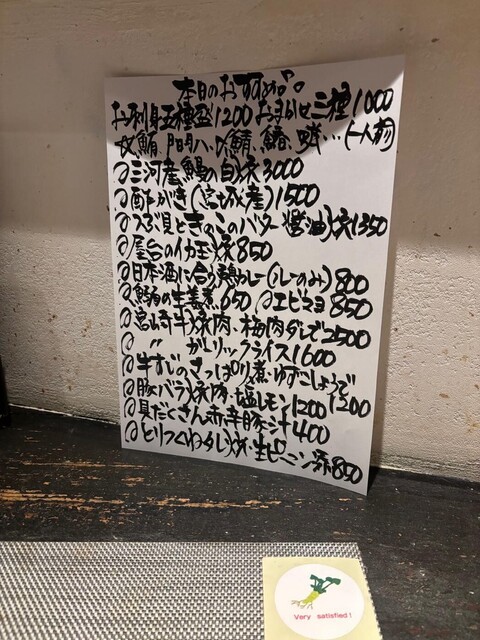 本日のおすすめ
お刺身五種盛1200 お まかせ三種1000
鮪、 〆鯖、鰆、 (一人前)
三河産鰻の白焼3000
酢がき(宮城産)1500
つぶ貝ときのこのバター醤油焼1350
屋台のイカ玉焼850
日本酒に合う鶏カレー(ルーのみ)800
鰯の生姜煮650 エビマヨ850
宮崎牛焼肉・梅肉ダレで2500
〃 ガーリックライス1600
牛すじのさっぱり煮・ゆずこしょうで1200
豚バラ焼肉・塩レモン1200
具だくさん赤辛豚汁400
とりつくねタレ焼・生ピーマン添850
Very satisfied!